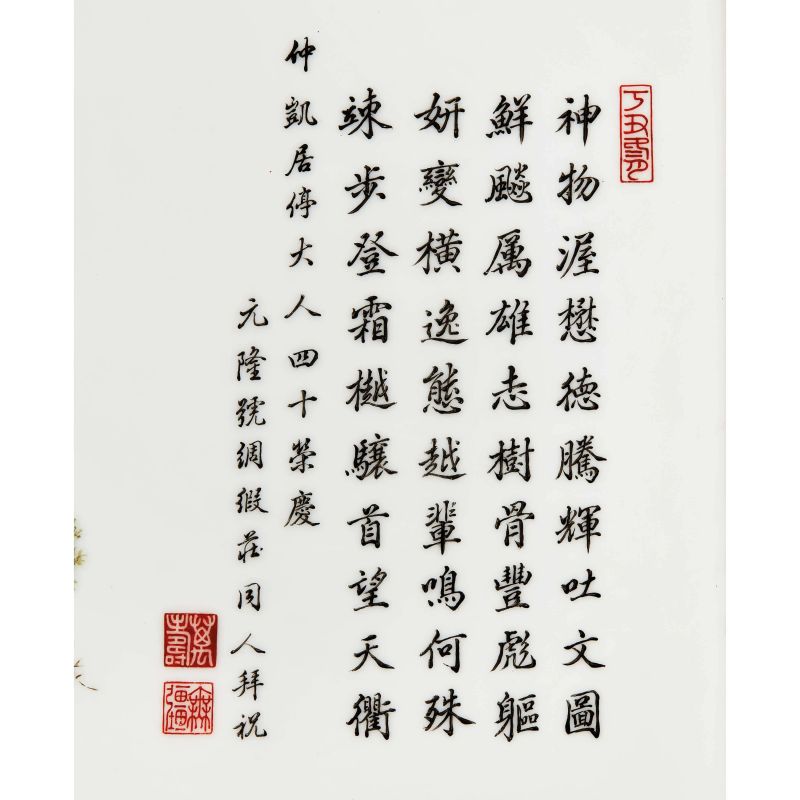 神物渥懋德騰輝吐文圖
鮮飈厲雄志樹骨豐彪軀
妍變橫逸態越輩鳴何殊
竦步登霜樾驤首望天衢
仲凱居停大人四十榮慶
元隆號綢緞莊同人拜祝
丁丑
萬壽
無疆